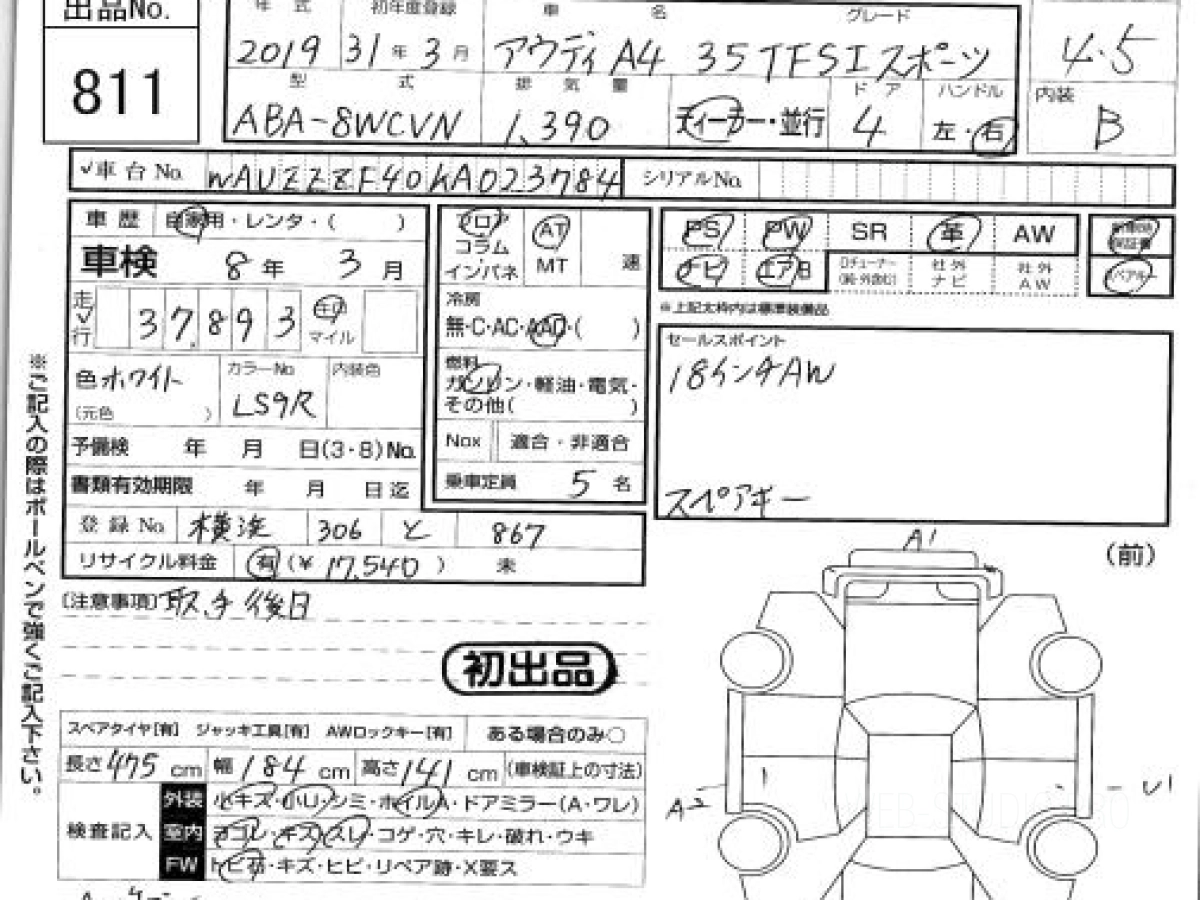 出品No.
811
年 式 初年度登録 車 名 グレード
2019 31年3月 アウディA4 35TFSIスポーツ
4.5
型 式 排気量 ドア ハンドル 内装
ABA-8WCVN 1,390 ディーラー・並行 4 左・右 B
✓車台No. WAUZZZF40KA023784 シリアルNo.
車歴 自家用・レンタ・( )
車検 8年 3月
走行 37,893 マイル
色ホワイト カラーNo LS9R 内装色
(元色 )
予備検 年 月 日(3・8)No.
書類有効期限 年 月 日迄
登録No. 横浜 306 と 867
リサイクル料金 有(¥ 17,540 ) 未
フロア コラム・インパネ
AT MT 速
冷房
無・C・AC・AAC・( )
燃料
ガソリン・軽油・電気・
その他( )
Nox 適合・非適合
乗車定員 5名
PS PW SR 革 AW
ナビ エアB Dチューナー 社外ナビ 社外AW
※上記太枠内は標準装備品
セールスポイント
18インチAW
スペアキー
(注意事項)
後日
初出品
スペアタイヤ[有] ジャッキ工具[有] AWロックキー[有] ある場合のみ○
長さ475cm 幅184cm 高さ141cm (車検証上の寸法)
検査記入
外装 小キズ・小U・シミ・ホイルA・ドアミラー(A・ワレ)
室内 ヨゴレ・キズ・スレ・コゲ・穴・キレ・破れ・ウキ
FW トビ石・キズ・ヒビ・リペア跡・X要ス
※ご記入の際はボールペンで強くご記入下さい。
A1
(前)
A2
U1